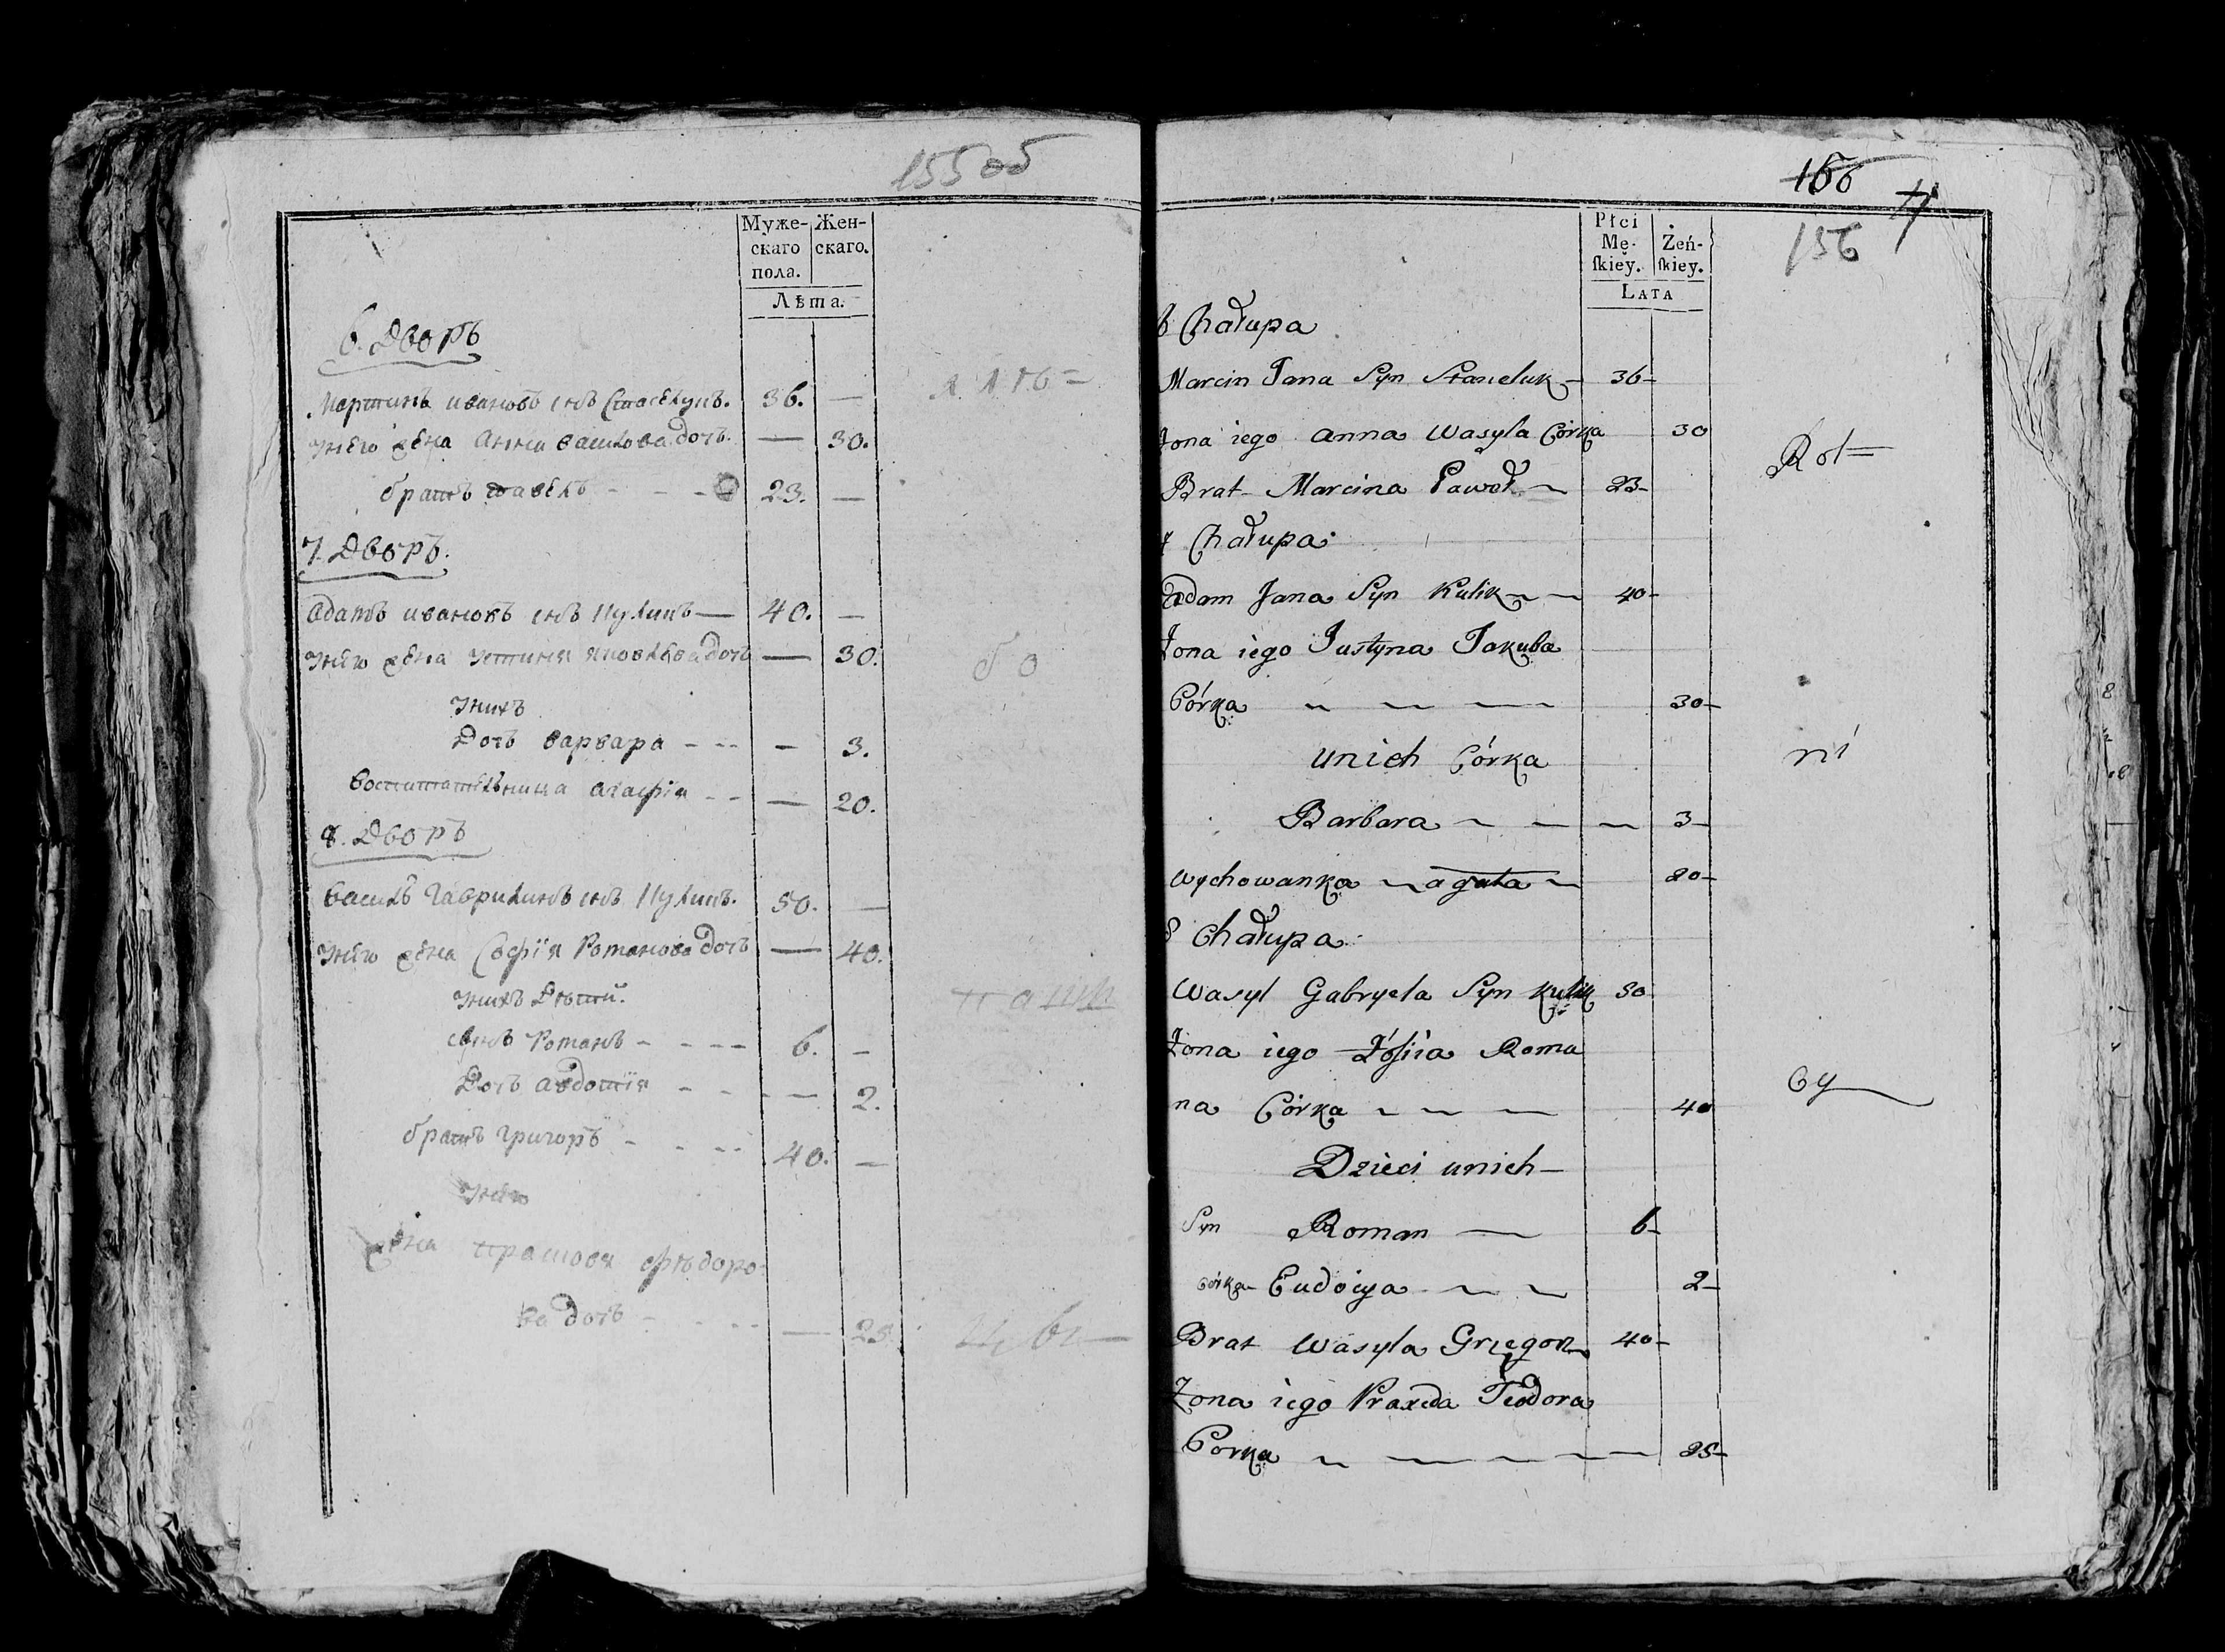 155 об
Муже-
скаго
пола.
Жен-
скаго.
Лѣта.
6. Дворъ
Мартинъ ивановъ снъ Стаселукъ. 36. —
унего жена Анна васильова дочь. — 30.
братъ павелъ - - - 23. —
7. Дворъ.
Адамъ ивановъ снъ Куликъ — 40. —
унего жена устиния яковлева дочь — 30.
унихъ
Дочь варвара - - - — 3.
воспитателница агафия - - — 20.
8. Дворъ
василь гаврилинъ снъ Куликъ. 50. —
унего жена София Романова дочь — 40.
унихъ Дѣти.
синъ Романъ - - - - 6. —
Дочь авдотия - - - — 2.
братъ григоръ - - - - 40. —
унего
жена прасковя фѣдоро-
ва дочь - - - - — 25.
156
156
Płci
Mę-
skiey.
Żeń-
skiey.
LATA
6 Chałupa
Marcin Jana Syn Staseluk — 36 —
Żona iego anna Wasyla Córka 30
Rot
Brat Marcina Paweł — 23 —
7 Chałupa
Adam Jana Syn Kulik — — 40 —
Żona iego Justyna Jakuba
Córka — — — 30 —
unich Córka
Barbara — — — 3 —
Wychowanka — agata — 20 —
8 Chałupa
Wasyl Gabryela Syn Kulik 50
Żona iego Zófiia Roma
na Córka — — — 40
Dzieci unich —
Syn Roman — 6 —
Córka Eudocya — — 2 —
Brat Wasyla Grzegorz 40 —
Żona iego Praxeda Teodora
Corka — — — — — 25 —